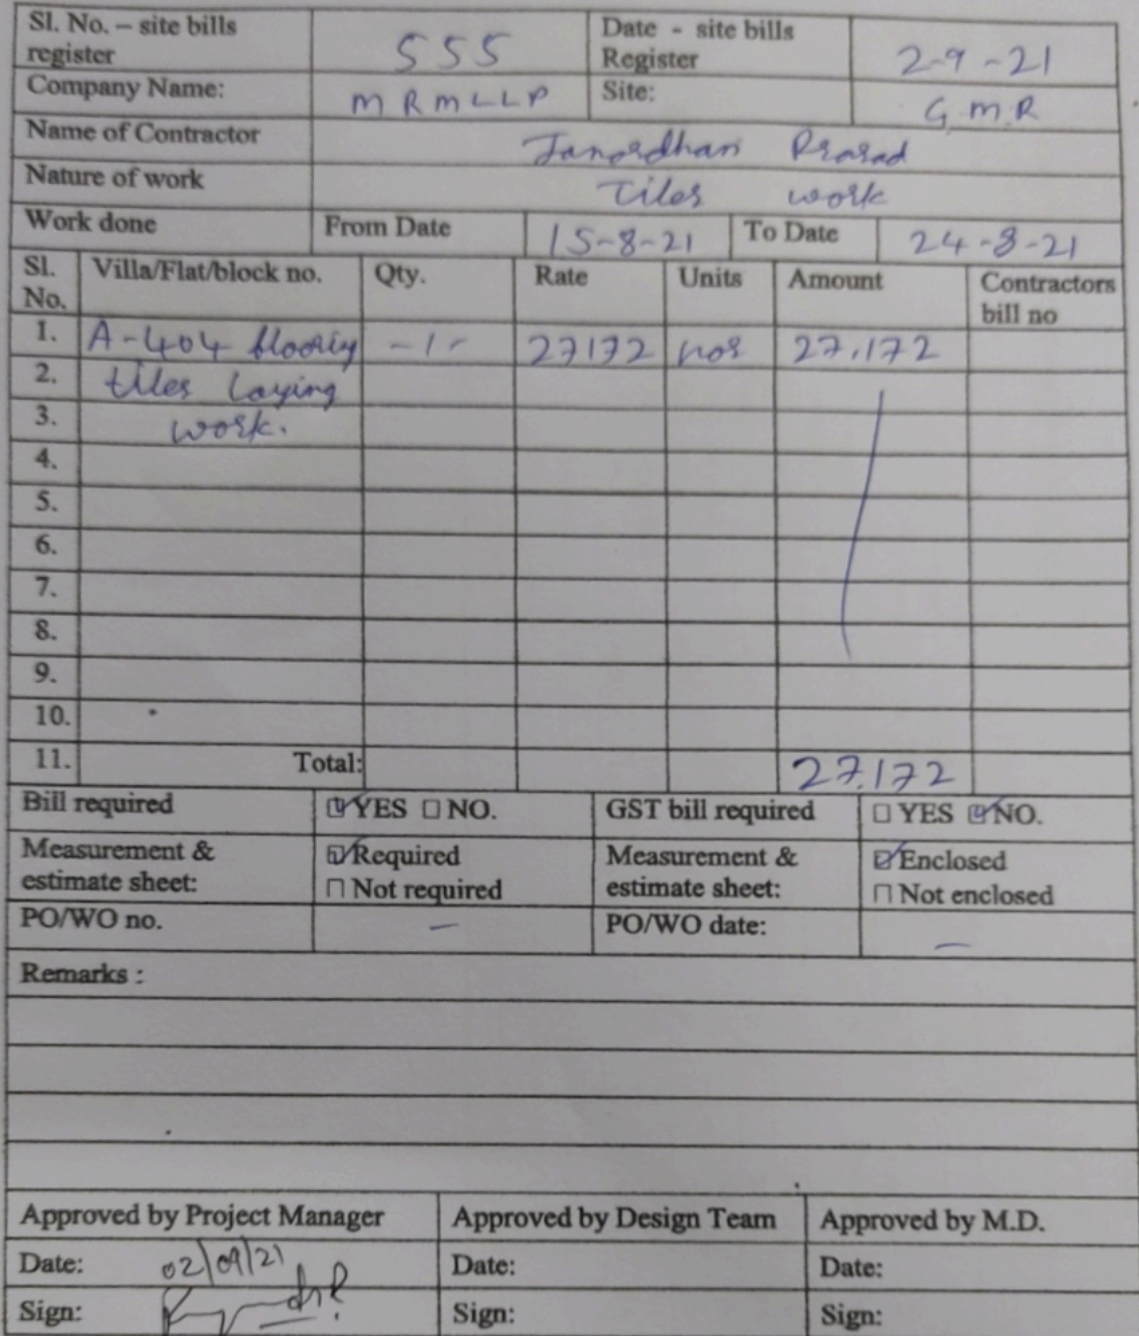 Sl. No. – site bills register 555 Date - site bills Register 2-9-21
Company Name: MRMLLP Site: G.M.R
Name of Contractor Janardhan Prasad
Nature of work Tiles work
Work done From Date 15-8-21 To Date 24-8-21
Sl. No. Villa/Flat/block no. Qty. Rate Units Amount Contractors bill no
1. A-404 flooring -1- 27172 nos 27,172
2. tiles laying
3. work.
4.
5.
6.
7.
8.
9.
10.
11. Total: 27,172
Bill required ☑ YES ☐ NO. GST bill required ☐ YES ☑ NO.
Measurement & estimate sheet: ☑ Required ☐ Not required Measurement & estimate sheet: ☑ Enclosed ☐ Not enclosed
PO/WO no. — PO/WO date: —
Remarks :
Approved by Project Manager Approved by Design Team Approved by M.D.
Date: 02/09/21 Date: Date:
Sign: Sign: Sign: